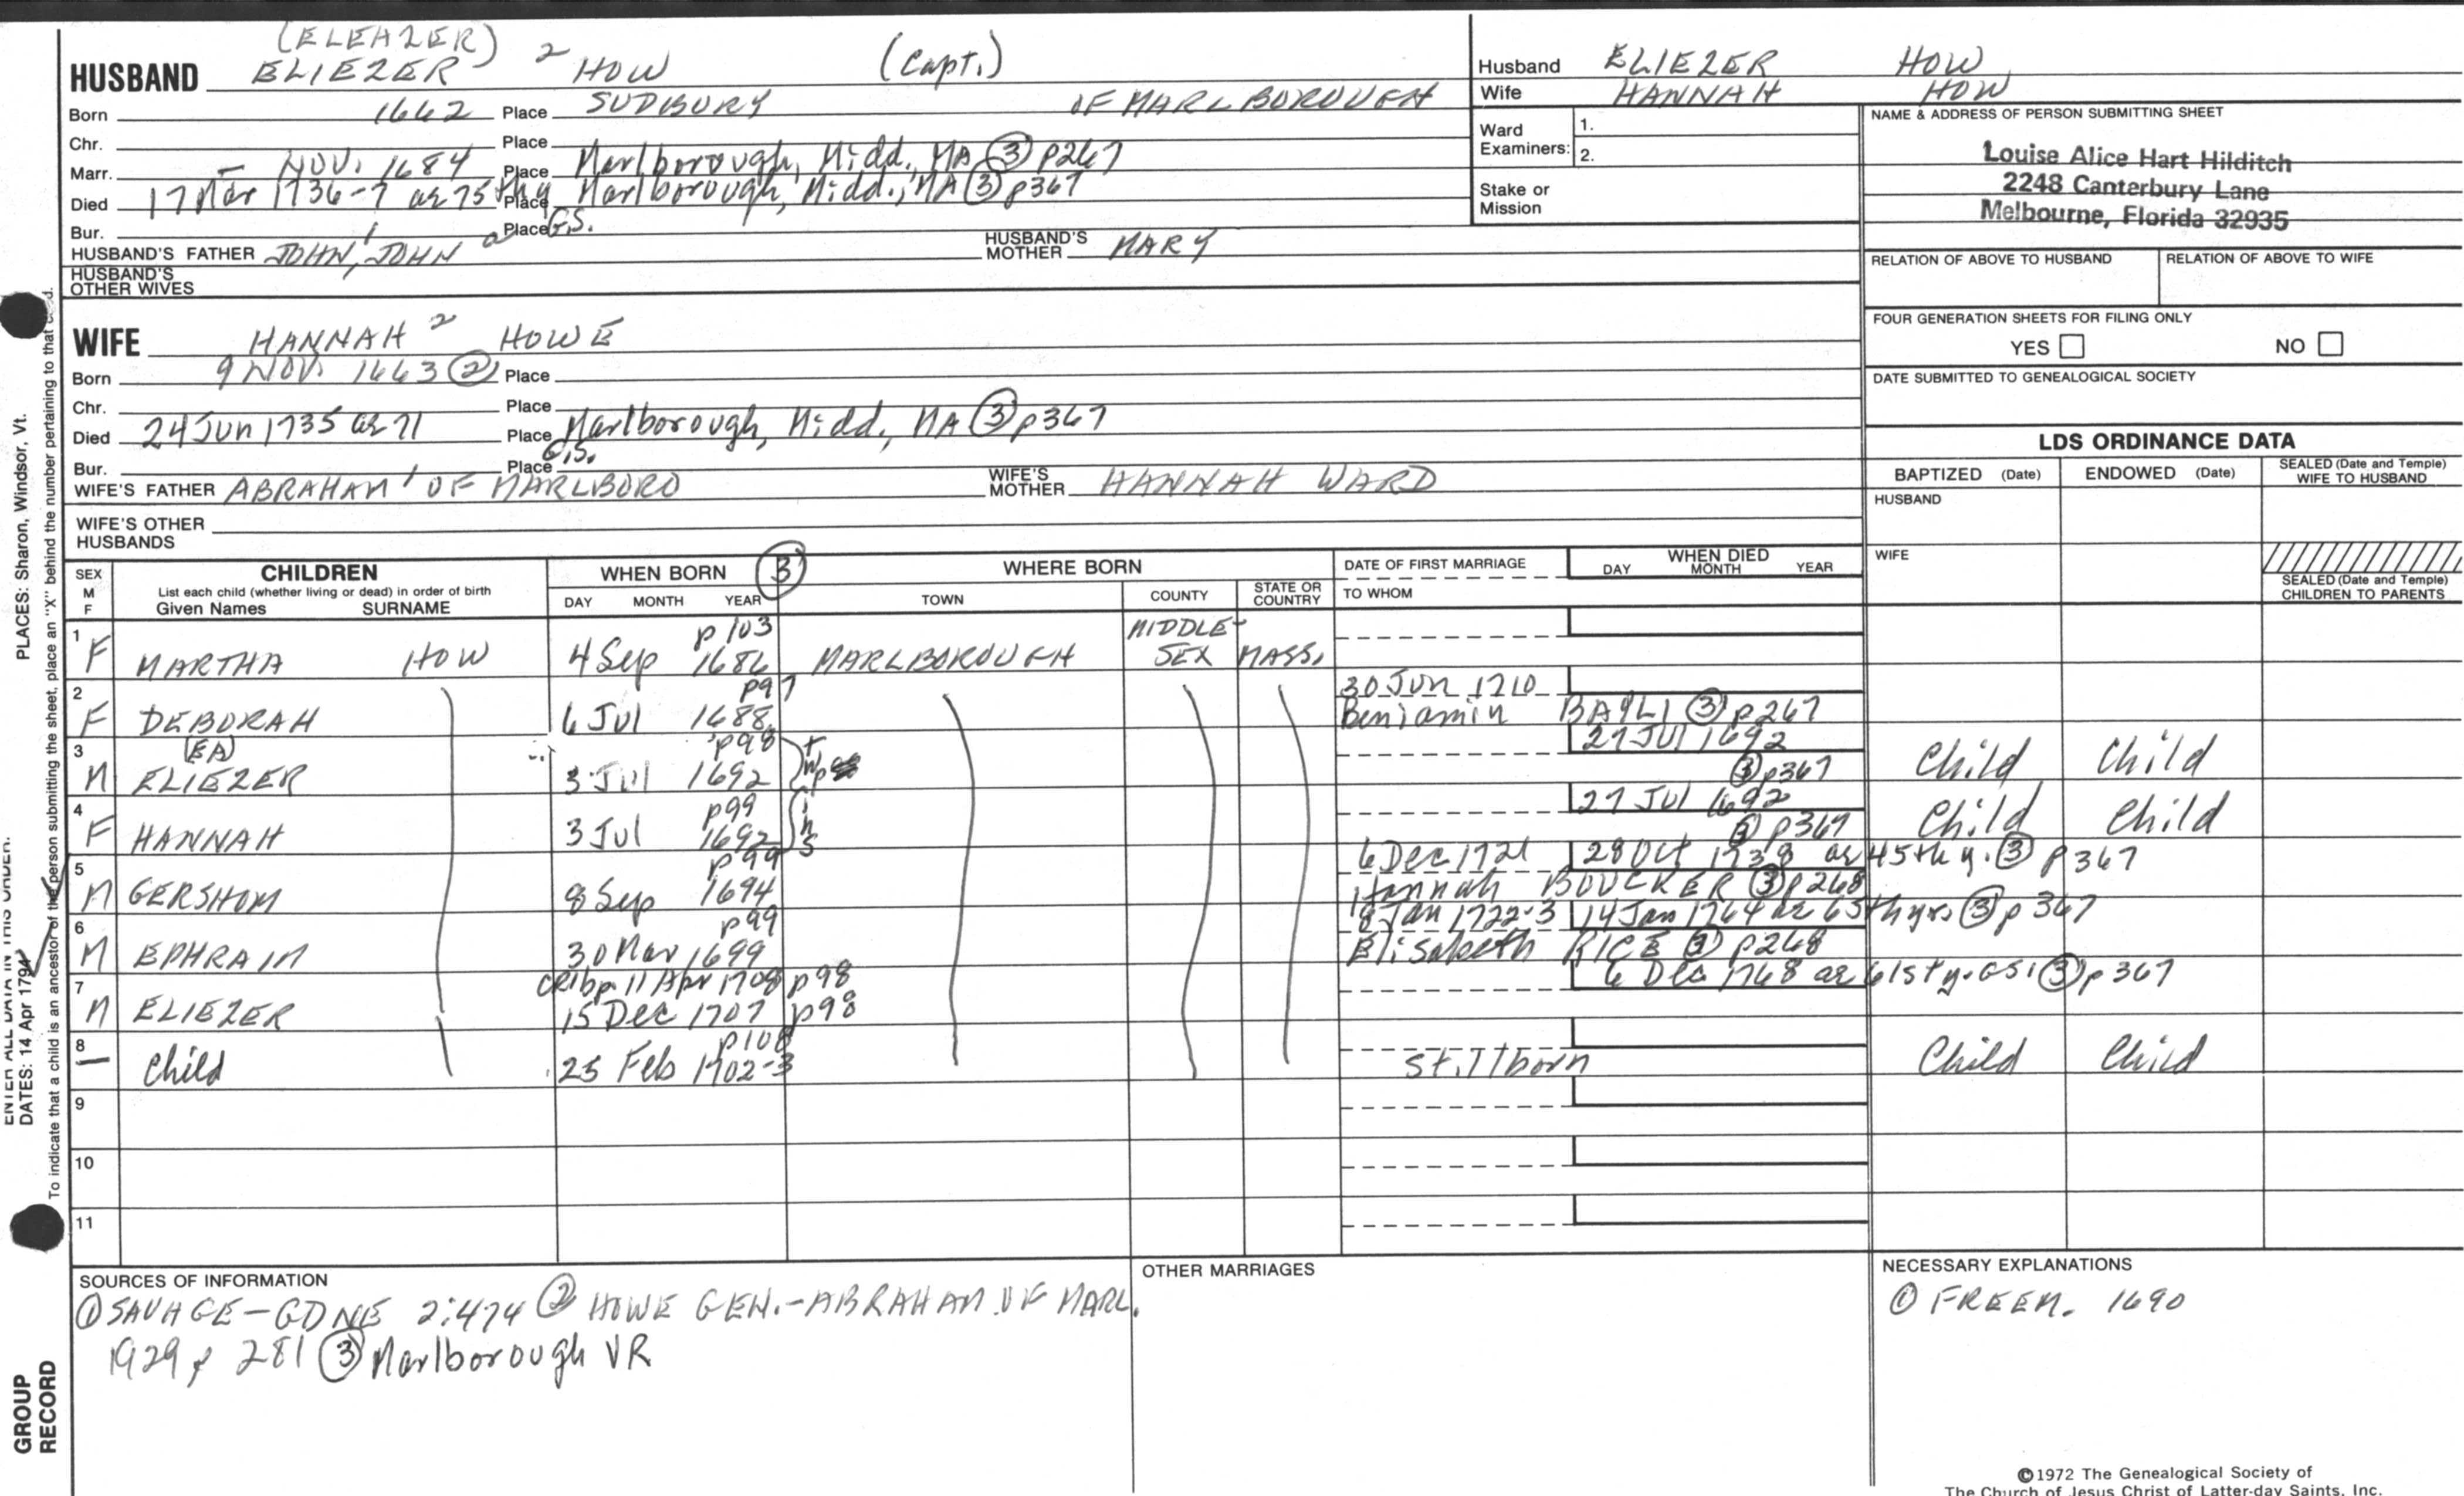 (ELEAZER)
HUSBAND ELIEZER 2 HOW (Capt.)
Born 1662 Place SUDBURY OF MARLBOROUGH
Chr. Place
Marr. – NOV. 1684 Place Marlborough, Midd., MA ③ p267
Died 17 Mar 1736-7 ae 75thy Place Marlborough, Midd., MA ③ p367
Bur. Place G.S.
HUSBAND'S FATHER JOHN, 1 JOHN a HUSBAND'S MOTHER MARY
HUSBAND'S OTHER WIVES
Husband ELIEZER HOW
Wife HANNAH HOW
Ward Examiners: 1.
2.
Stake or Mission
NAME & ADDRESS OF PERSON SUBMITTING SHEET
Louise Alice Hart Hilditch
2248 Canterbury Lane
Melbourne, Florida 32935
RELATION OF ABOVE TO HUSBAND RELATION OF ABOVE TO WIFE
FOUR GENERATION SHEETS FOR FILING ONLY
YES NO
DATE SUBMITTED TO GENEALOGICAL SOCIETY
WIFE HANNAH 2 HOWE
Born 9 NOV. 1663 ② Place
Chr. Place
Died 24 Jun 1735 ae 71 Place Marlborough, Midd., MA ③ p367
Bur. Place G.S.
WIFE'S FATHER ABRAHAM 1 OF MARLBORO WIFE'S MOTHER HANNAH WARD
WIFE'S OTHER HUSBANDS
LDS ORDINANCE DATA
BAPTIZED (Date) ENDOWED (Date) SEALED (Date and Temple) WIFE TO HUSBAND
HUSBAND
WIFE
SEALED (Date and Temple) CHILDREN TO PARENTS
SEX M F
CHILDREN
List each child (whether living or dead) in order of birth
Given Names SURNAME
WHEN BORN ③
DAY MONTH YEAR
WHERE BORN
TOWN COUNTY STATE OR COUNTRY
DATE OF FIRST MARRIAGE
TO WHOM
WHEN DIED
DAY MONTH YEAR
p103 MIDDLE-
1 F MARTHA HOW 4 Sep 1686 MARLBOROUGH SEX MASS.
p97 30 JUN 1710
2 F DEBORAH 6 Jul 1688 Benjamin BAYLI ③ p267
(EA) p98 27 JUl 1692
3 M ELIEZER 3 Jul 1692 twins ③ p367 Child Child
p99 27 Jul 1692
4 F HANNAH 3 Jul 1692 ③ p367 Child Child
p99 6 Dec 1721 28 Oct 1738 ae 45th y. ③ p367
5 M GERSHOM 8 Sep 1694 Hannah BOUCKER ③ p268
p99 8 Jan 1722-3 14 Jan 1764 ae 65th yrs ③ p367
6 M EPHRAIM 30 Mar 1699 Elisabeth RICE ③ p268
bp 11 Apr 1708 p98 6 Dec 1768 ae 61st y. GS1 ③ p367
7 M ELIEZER 15 Dec 1707 p98
8 — Child 25 Feb 1702-3 stillborn Child Child
9
10
11
SOURCES OF INFORMATION
① SAVAGE – GDNE 2:474 ② HOWE GEN. – ABRAHAM OF MARL.
1929 p 281 ③ Marlborough VR
OTHER MARRIAGES
NECESSARY EXPLANATIONS
① FREEM. 1690
©1972 The Genealogical Society of
The Church of Jesus Christ of Latter-day Saints, Inc.
PLACES: Sharon, Windsor, Vt.
DATES: 14 Apr 1794
ENTER ALL DATA IN THIS ORDER:
To indicate that a child is an ancestor of the person submitting the sheet, place an "X" behind the number pertaining to that
GROUP
RECORD